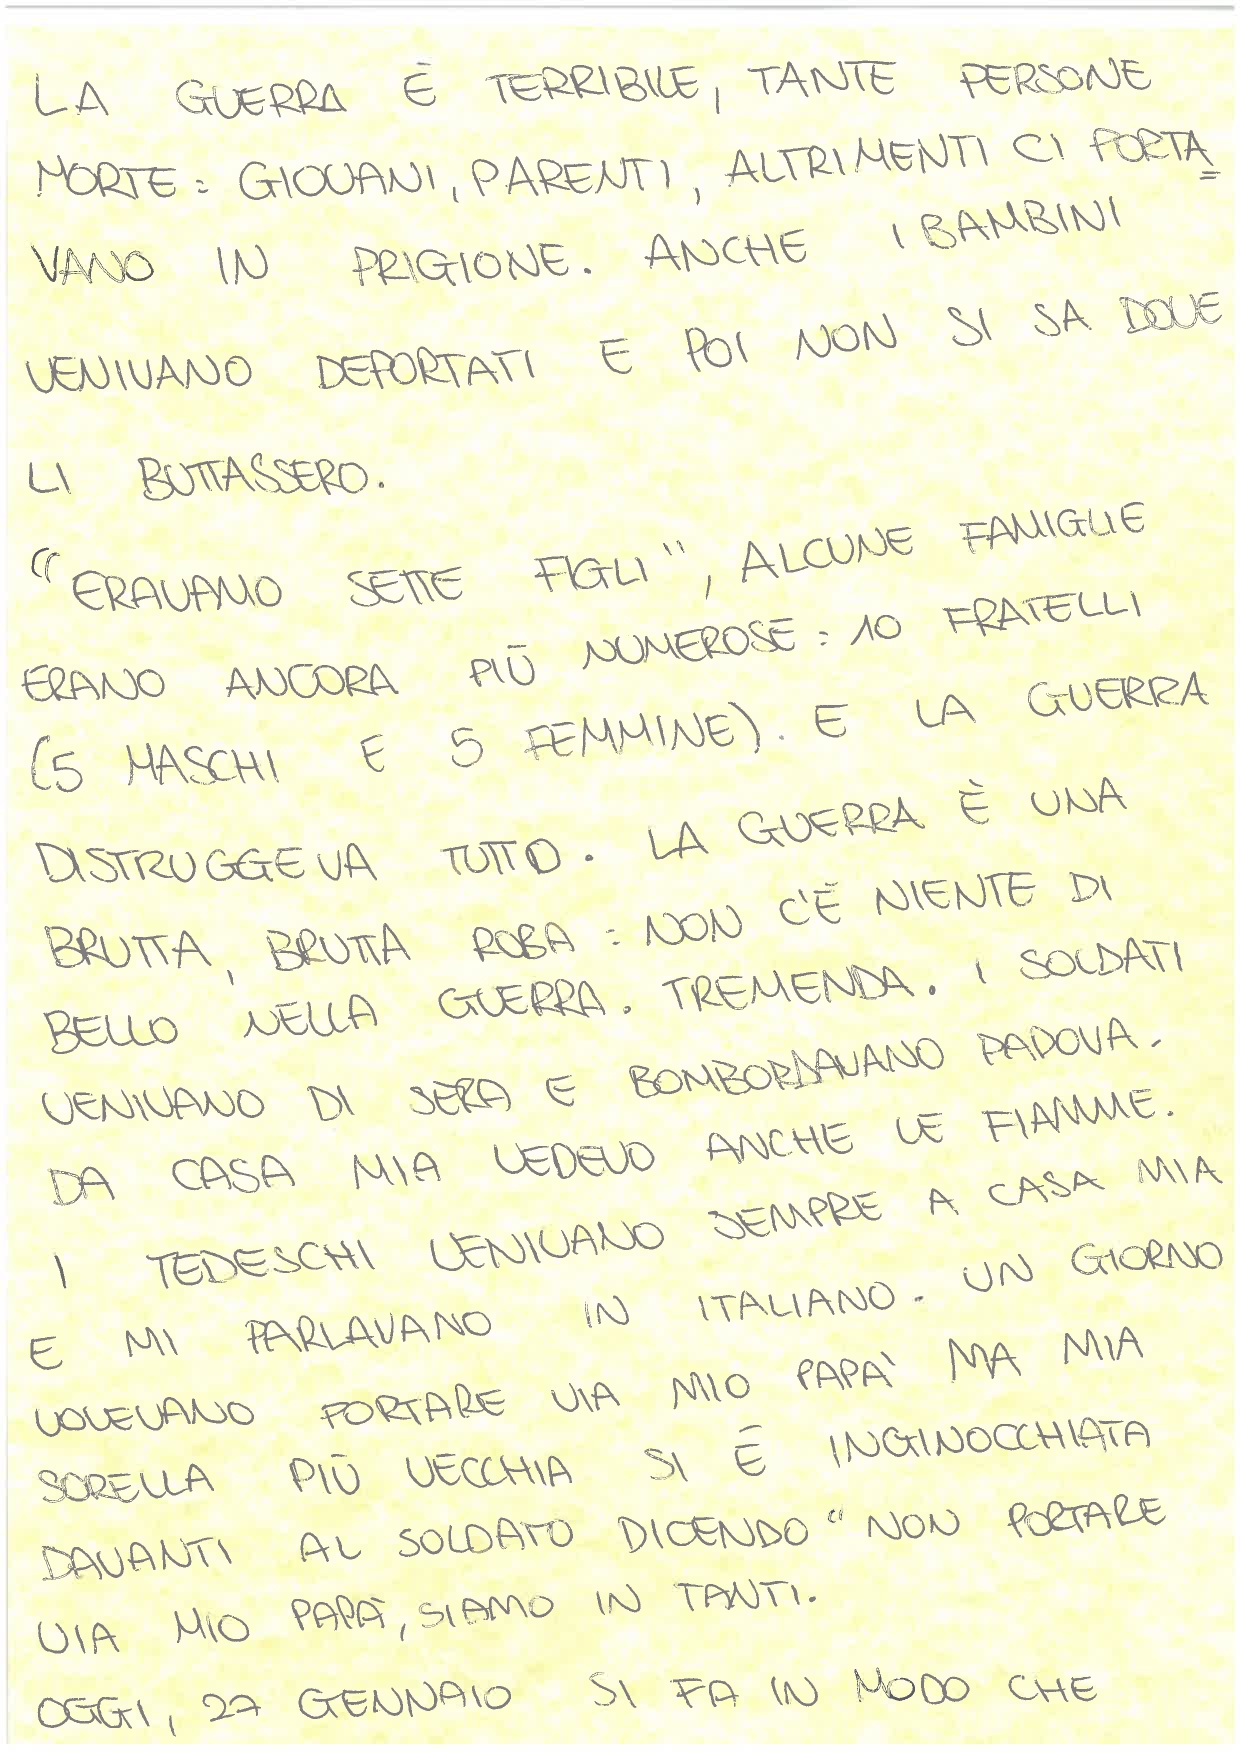 LA GUERRA È TERRIBILE, TANTE PERSONE
MORTE: GIOVANI, PARENTI, ALTRIMENTI CI PORTA=
VANO IN PRIGIONE. ANCHE I BAMBINI
VENIVANO DEPORTATI E POI NON SI SA DOVE
LI BUTTASSERO.
"ERAVAMO SETTE FIGLI", ALCUNE FAMIGLIE
ERANO ANCORA PIÙ NUMEROSE: 10 FRATELLI
(5 MASCHI E 5 FEMMINE). E LA GUERRA
DISTRUGGEVA TUTTO. LA GUERRA È UNA
BRUTTA, BRUTTA ROBA: NON C'È NIENTE DI
BELLO NELLA GUERRA. TREMENDA. I SOLDATI
VENIVANO DI SERA E BOMBORDAVANO PADOVA.
DA CASA MIA VEDEVO ANCHE LE FIAMME.
I TEDESCHI VENIVANO SEMPRE A CASA MIA
E MI PARLAVANO IN ITALIANO. UN GIORNO
VOLEVANO PORTARE VIA MIO PAPA' MA MIA
SORELLA PIÙ VECCHIA SI È INGINOCCHIATA
DAVANTI AL SOLDATO DICENDO "NON PORTARE
VIA MIO PAPÀ, SIAMO IN TANTI.
OGGI, 27 GENNAIO SI FA IN MODO CHE